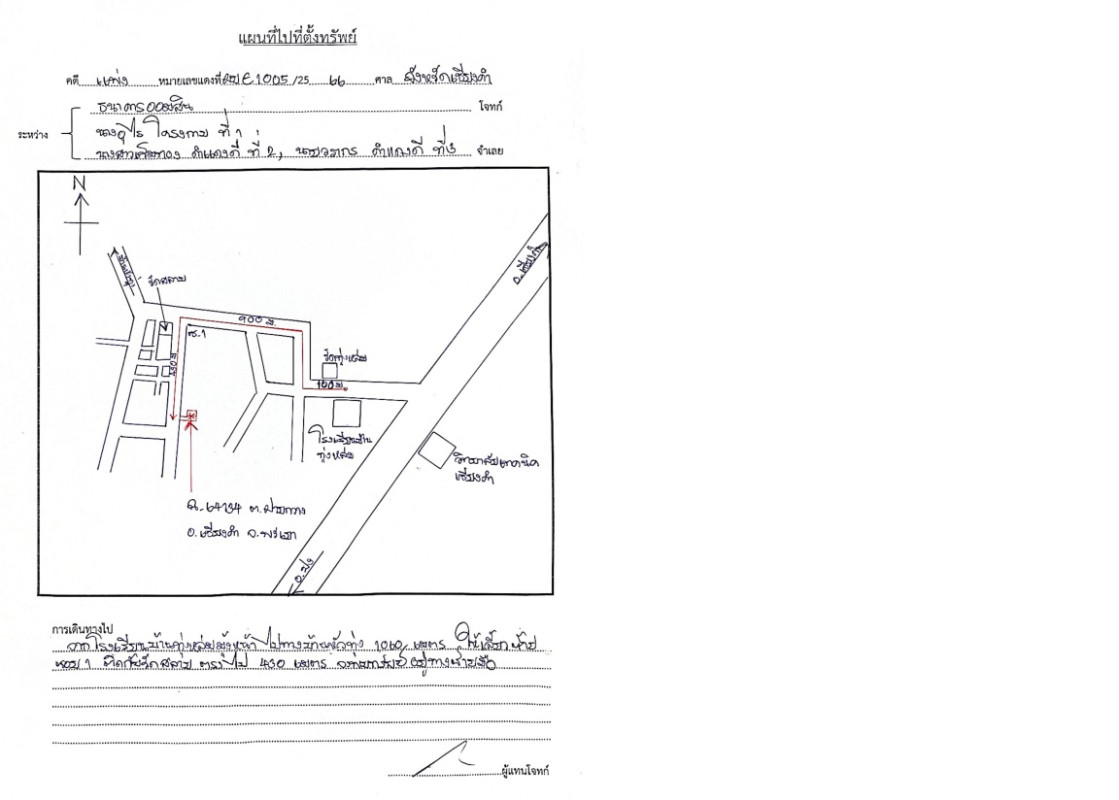 แผนที่ไปที่ตั้งทรัพย์
คดี แพ่ง หมายเลขแดงที่ ผบE1005/25 66 ศาล จังหวัดเชียงคำ
ธนาคารออมสิน โจทก์
ระหว่าง
ที่ 1
ที่ 2, ที่ 3 จำเลย
N
วัดสลาบ
900 ม.
ซ.1
430 ม.
วัดทุ่งหล่ม
100 ม.
โรงเรียนบ้าน
ทุ่งหล่ม
อ.ปง
วิทยาลัยเทคนิค
เชียงคำ
ต.ฝายกวาง
อ.เชียงคำ จ.พะเยา
การเดินทางไป
จากโรงเรียนบ้านทุ่งหล่มมุ่งหน้าไปทางบ้าน เมตร ให้เลี้ยวซ้าย
ซอย 1 ติดกับวัดสลาบ ตรงไป 430 เมตร อยู่ทางซ้ายมือ
ผู้แทนโจทก์